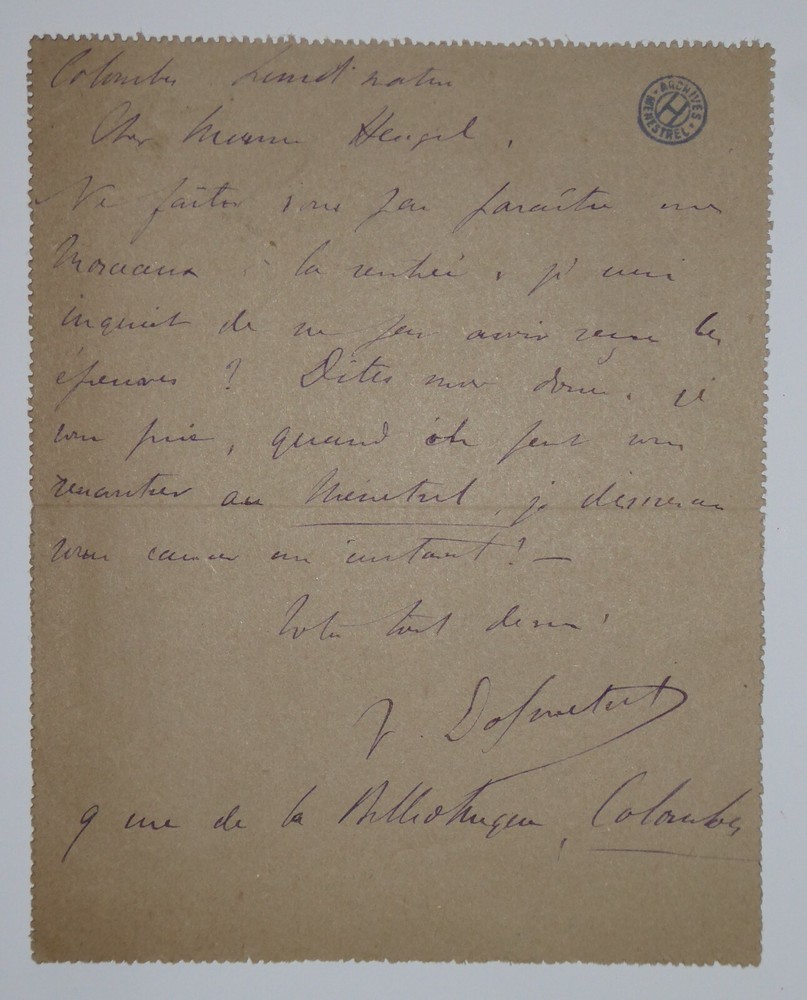 Colombes Lundi matin
ARCHIVES MENESTREL H
Cher Monsieur Heugel,
Ne faites vous pas paraître mes
Morceaux à la rentrée, je suis
inquiet de ne pas avoir reçu les
épreuves ? Dites moi donc, je
vous prie, quand on peut vous
rencontrer au Ménestrel, je désirerais
vous causer un instant ! —
Votre tout dévoué
9 rue de la Bibliothèque, Colombes